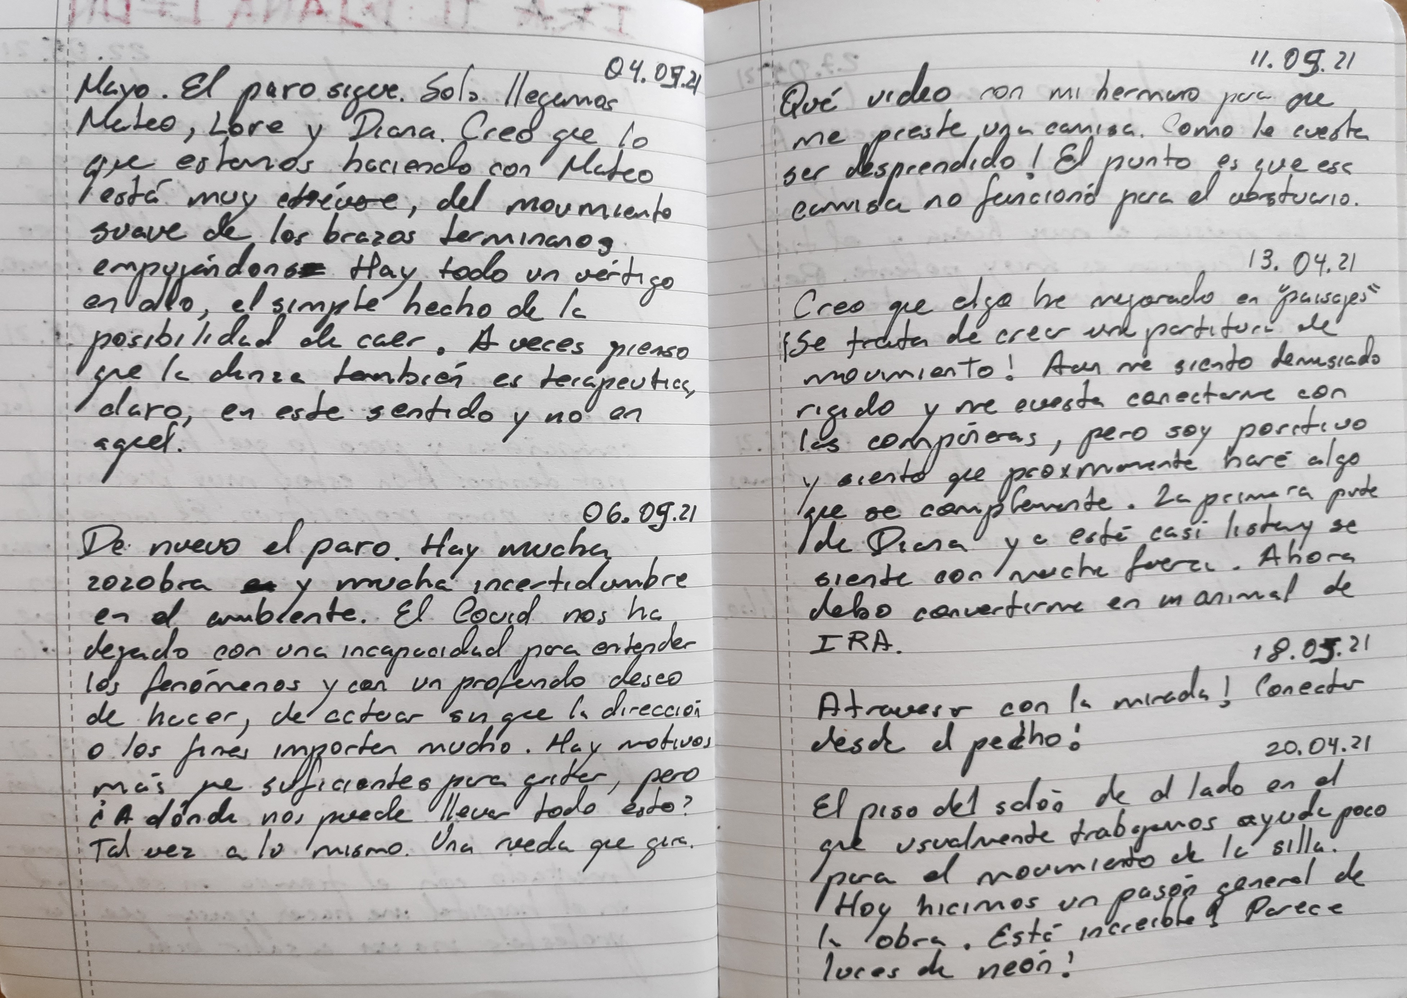 04.05.21
Mayo. El paro sigue. Solo llegamos
Mateo, Lore y Diana. Creo que lo
que estamos haciendo con Mateo
está muy chévere, del movimiento
suave de los brazos terminamos
empujándonos. Hay todo un vértigo
en ello, el simple hecho de la
posibilidad de caer. A veces pienso
que la danza también es terapeutica,
claro, en este sentido y no en
aquel.
06.05.21
De nuevo el paro. Hay mucha
zozobra y mucha incertidumbre
en el ambiente. El Covid nos ha
dejado con una incapacidad para entender
los fenómenos y con un profundo deseo
de hacer, de actuar sin que la dirección
o los fines importen mucho. Hay motivos
más que suficientes para gritar, pero
¿A dónde nos puede llevar todo esto?
Tal vez a lo mismo. Una rueda que gira.
11.05.21
Qué video con mi hermano para que
me preste una camisa. Como le cuesta
ser desprendido! El punto es que esa
camisa no funcionó para el vestuario.
13.04.21
Creo que algo he mejorado en "paisajes"
¡Se trata de crear una partitura de
movimiento! Aun me siento demasiado
rigido y me cuesta conectarme con
las compañeras, pero soy positivo
y siento que proximamente haré algo
que se complemente. La primera parte
de Diana ya está casi lista y se
siente con mucha fuerza. Ahora
debo convertirme en un animal de
IRA.
18.05.21
Atravesar con la mirada! Conectar
desde el pecho!
20.04.21
El piso del salón de al lado en el
que usualmente trabajamos ayuda poco
para el movimiento de la silla.
Hoy hicimos un pasón general de
la obra. Está increible! Parece
luces de neón!